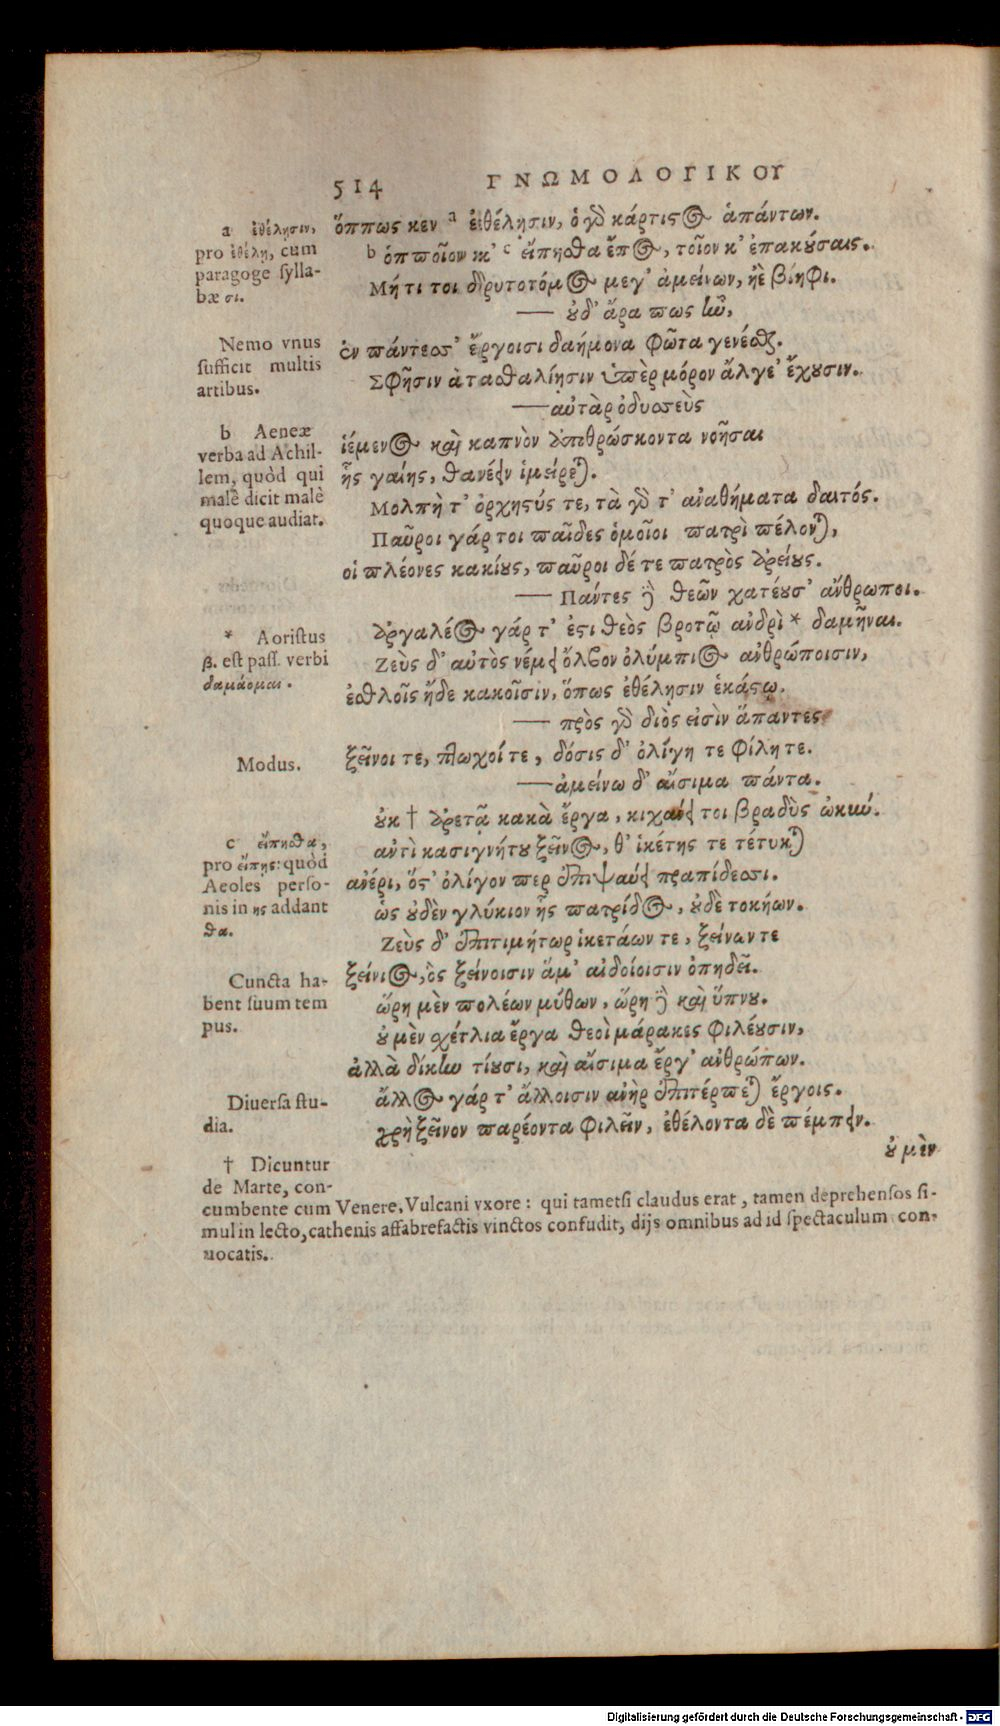 514 ΓΝΩΜΟΛΟΓΙΚΟΥ
ὅππως κεν a ἐιθέλησιν, ὁ γὸ κάρτιςος ἁπάντων.
b ὁπποῖον κ' c εἴπησθα ἔπος, τοῖον κ' ἐπακούσαις.
Μή τι τοι δρυτοτόμος μεγ' ἀμείνων, ἠὲ βίηφι.
— οὐδ' ἄρα πως ἰω,
ἐν πάντεσσ' ἔργοισι δαήμονα φῶτα γενέσθαι.
Σφῇσιν ἀτασθαλίῃσιν ὑπὲρ μόρον ἄλγε' ἔχουσιν.
— αὐτὰρ ὀδυσσεὺς
ἱέμενος καὶ καπνὸν ἀποθρώσκοντα νοῆσαι
ἧς γαίης, θανέειν ἱμείρεται.
Μολπὴ τ' ὀρχηςύς τε, τὰ γὸ τ' ἀναθήματα δαιτός.
Παῦροι γάρ τοι παῖδες ὁμοῖοι πατρὶ πέλονται,
οἱ πλέονες κακίους, παῦροι δέ τε πατρὸς ἀρείους.
— Πάντες δὲ θεῶν χατέουσ' ἄνθρωποι.
ἀργαλέος γάρ τ' ἐςι θεὸς βροτῷ ἀνδρὶ * δαμῆναι.
Ζεὺς δ' αὐτὸς νέμει ὄλβον ὀλύμπιος ἀνθρώποισιν,
ἐσθλοῖς ἤδε κακοῖσιν, ὅπως ἐθέλησιν ἑκάςῳ.
— πρὸς γὸ διὸς εἰσὶν ἅπαντες
ξεῖνοι τε, πτωχοί τε, δόσις δ' ὀλίγη τε φίλη τε.
— ἀμείνω δ' αἴσιμα πάντα.
οὐκ † ἀρετᾷ κακὰ ἔργα, κιχανει τοι βραδὺς ὠκιω.
ἀντὶ κασιγνήτου ξεῖνος, θ' ἱκέτης τε τέτυκται
ἀνέρι, ὅς' ὀλίγον περ ἐπιψαύει πραπίδεσσι.
ὡς οὐδὲν γλύκιον ἧς πατρίδος, οὐδὲ τοκήων.
Ζεὺς δ' ἐπιτιμήτωρ ἱκετάων τε, ξείνων τε
ξείνιος, ὃς ξείνοισιν ἅμ' αἰδοίοισιν ὀπηδεῖ.
ὥρη μὲν πολέων μύθων, ὥρη δὲ καὶ ὕπνου.
οὐ μὲν σχέτλια ἔργα θεοὶ μάρακες φιλέουσιν,
ἀλλὰ δίκιω τίουσι, καὶ αἴσιμα ἔργ' ἀνθρώπων.
ἄλλος γάρ τ' ἄλλοισιν ἀνὴρ ἐπιτέρπεται ἔργοις.
χρὴ ξεῖνον παρέοντα φιλεῖν, ἐθέλοντα δὲ πέμπειν.
οὐ μὲν
a ἐθέλησιν,
pro ἐθέλῃ, cum
paragoge sylla-
bæ σι.
Nemo vnus
sufficit multis
artibus.
b Aeneæ
verba ad Achil-
lem, quòd qui
malè dicit malè
quoque audiat.
* Aoristus
β. est pass. verbi
δαμάομαι.
Modus.
c εἴπησθα,
pro εἴπης: quòd
Aeoles perso-
nis in ης addant
θα.
Cuncta ha-
bent suum tem
pus.
Diuersa stu-
dia.
† Dicuntur
de Marte, con-
cumbente cum Venere, Vulcani vxore: qui tametsi claudus erat, tamen deprehensos si-
mul in lecto, cathenis affabrefactis vinctos confudit, dijs omnibus ad id spectaculum con-
uocatis.
Digitalisierung gefördert durch die Deutsche Forschungsgemeinschaft - DFG